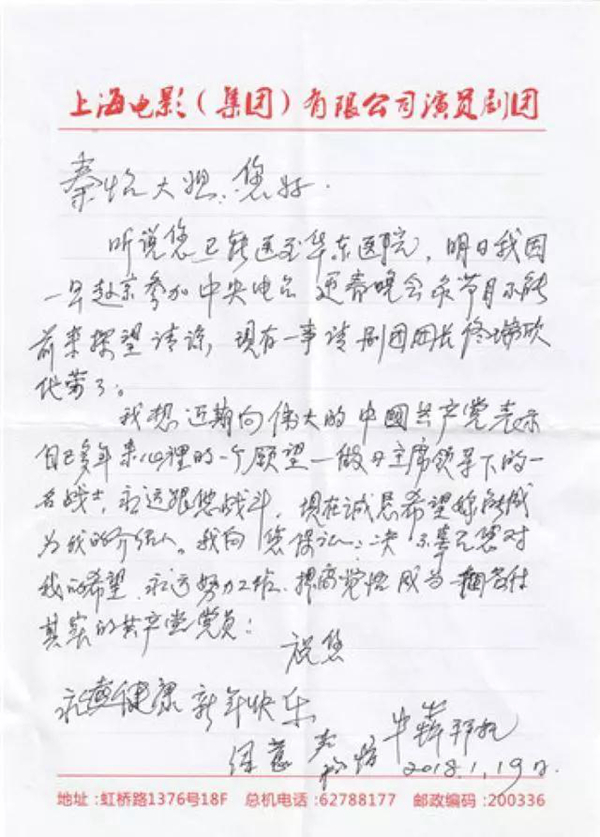 上海电影（集团）有限公司演员剧团
秦怡大姐：您好。
听说您已转医至华东医院，明日我因
一早赴京参加中央电台 迎春晚会录节目不能
前来探望请谅，现有一事请剧团团长佟瑞欣
代劳了。
我想近期向伟大的中國共产党表示
自己多年来心裡的一个愿望—做习主席领导下的一
名战士，永远跟他战斗，现在诚恳希望您能成
为我的介绍人。我向您保证：决不辜负您对
我的希望，永远努力工作，提高觉悟成为一個名付
其实的共产党党员！
祝您
永远健康 新年快乐
牛犇 拜托
2018.1.19日
地址：虹桥路1376号18F 总机电话：62788177 邮政编码：200336